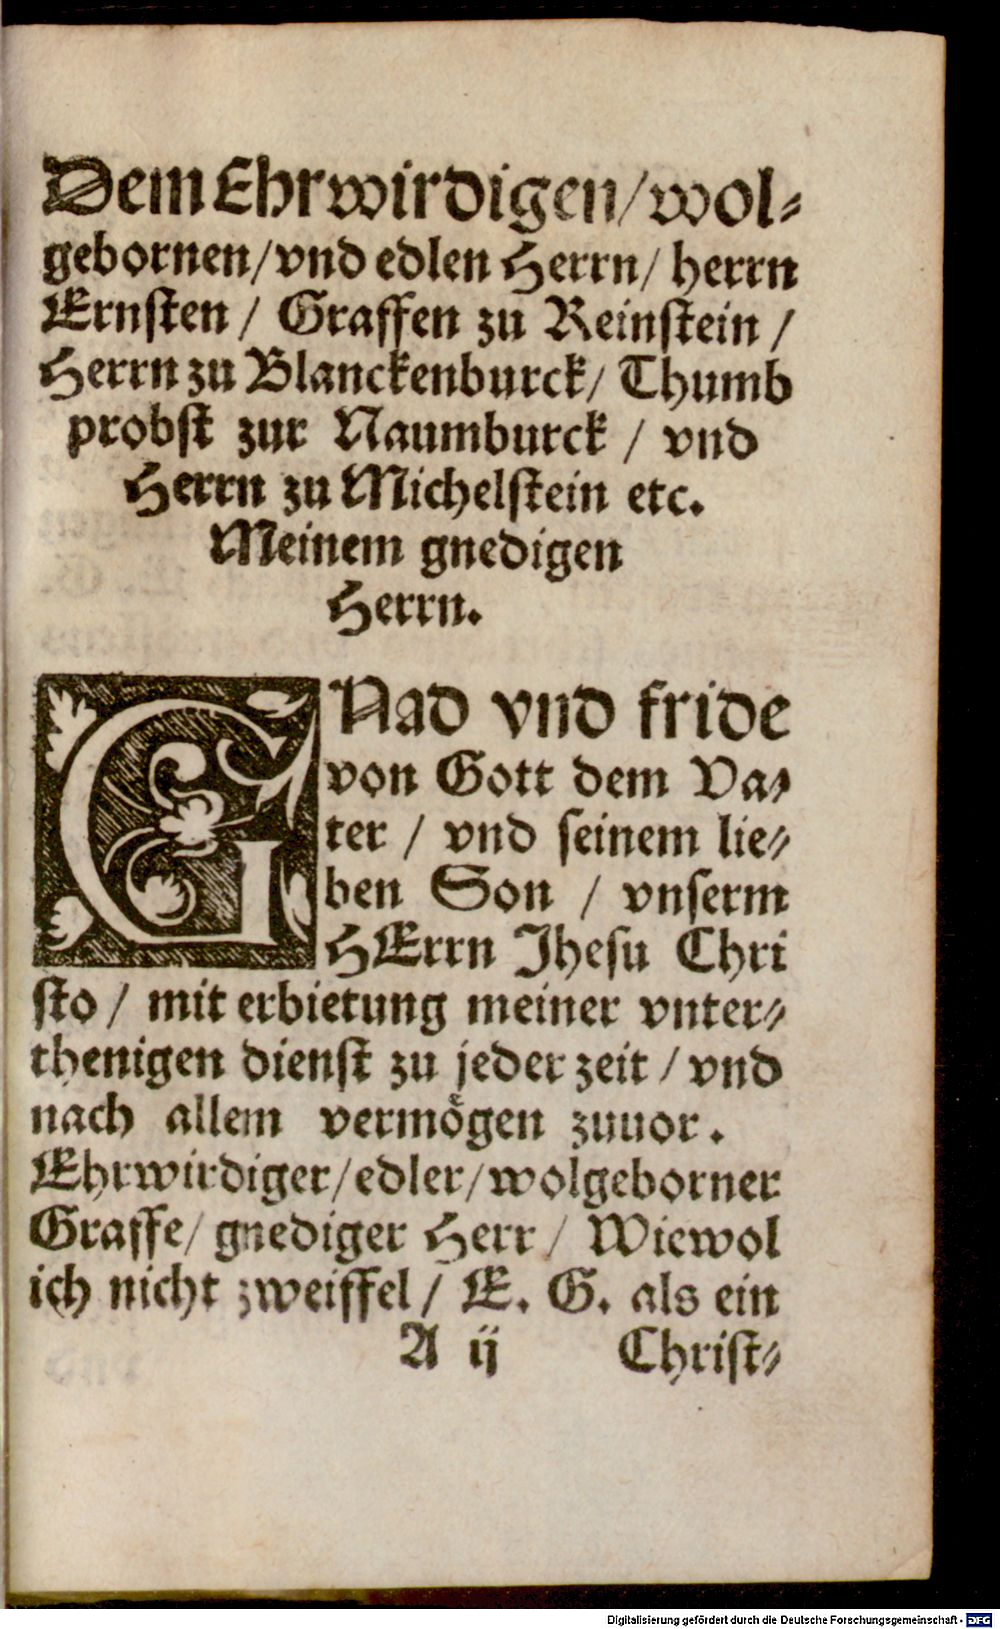 Dem Ehrwirdigen/wol⸗
gebornen/vnd edlen Herrn/ herrn
Ernſten / Graffen zu Reinſtein /
Herrn zu Blanckenburck/ Thumb
probſt zur Naumburck / vnd
Herrn zu Michelſtein etc.
Meinem gnedigen
Herrn.
GNad vnd fride
von Gott dem Va⸗
ter / vnd ſeinem lie⸗
ben Son / vnſerm
HErrn Jheſu Chri
ſto / mit erbietung meiner vnter⸗
thenigen dienſt zu jeder zeit / vnd
nach allem vermögen zuuor.
Ehrwirdiger/edler/wolgeborner
Graffe/ gnediger Herr / Wiewol
ich nicht zweiffel / E. G. als ein
A ij Chriſt⸗
Digitalisierung gefördert durch die Deutsche Forschungsgemeinschaft - DFG